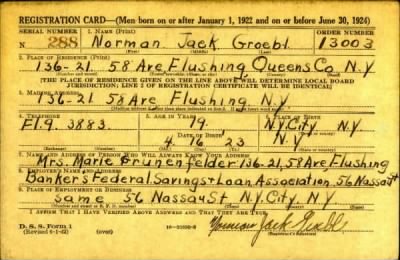 REGISTRATION CARD—(Men born on or after January 1, 1922 and on or before June 30, 1924)
SERIAL NUMBER 1. NAME (Print) ORDER NUMBER
N 288 Norman Jack Groebl 13003
2. PLACE OF RESIDENCE (Print)
136-21 58 Ave, Flushing Queens Co. N.Y
[THE PLACE OF RESIDENCE GIVEN ON THE LINE ABOVE WILL DETERMINE LOCAL BOARD
JURISDICTION; LINE 2 OF REGISTRATION CERTIFICATE WILL BE IDENTICAL]
3. MAILING ADDRESS
136-21 58 Ave Flushing N.Y.
4. TELEPHONE 5. AGE IN YEARS 6. PLACE OF BIRTH
Fl.9. 3883. 19. N.Y.City N.Y.
DATE OF BIRTH
4 16 23 N.Y.
7. NAME AND ADDRESS OF PERSON WHO WILL ALWAYS KNOW YOUR ADDRESS
Mrs. Marie Brunenfelder 136-21, 58 Ave, Flushing
8. EMPLOYER'S NAME AND ADDRESS
Bankers Federal Savings + Loan Association, 56 Nassau St
9. PLACE OF EMPLOYMENT OR BUSINESS
Same 56 Nassau St N.Y. City, N.Y.
I AFFIRM THAT I HAVE VERIFIED ABOVE ANSWERS AND THAT THEY ARE TRUE.
D. S. S. Form 1 (over) Norman Jack Groebl